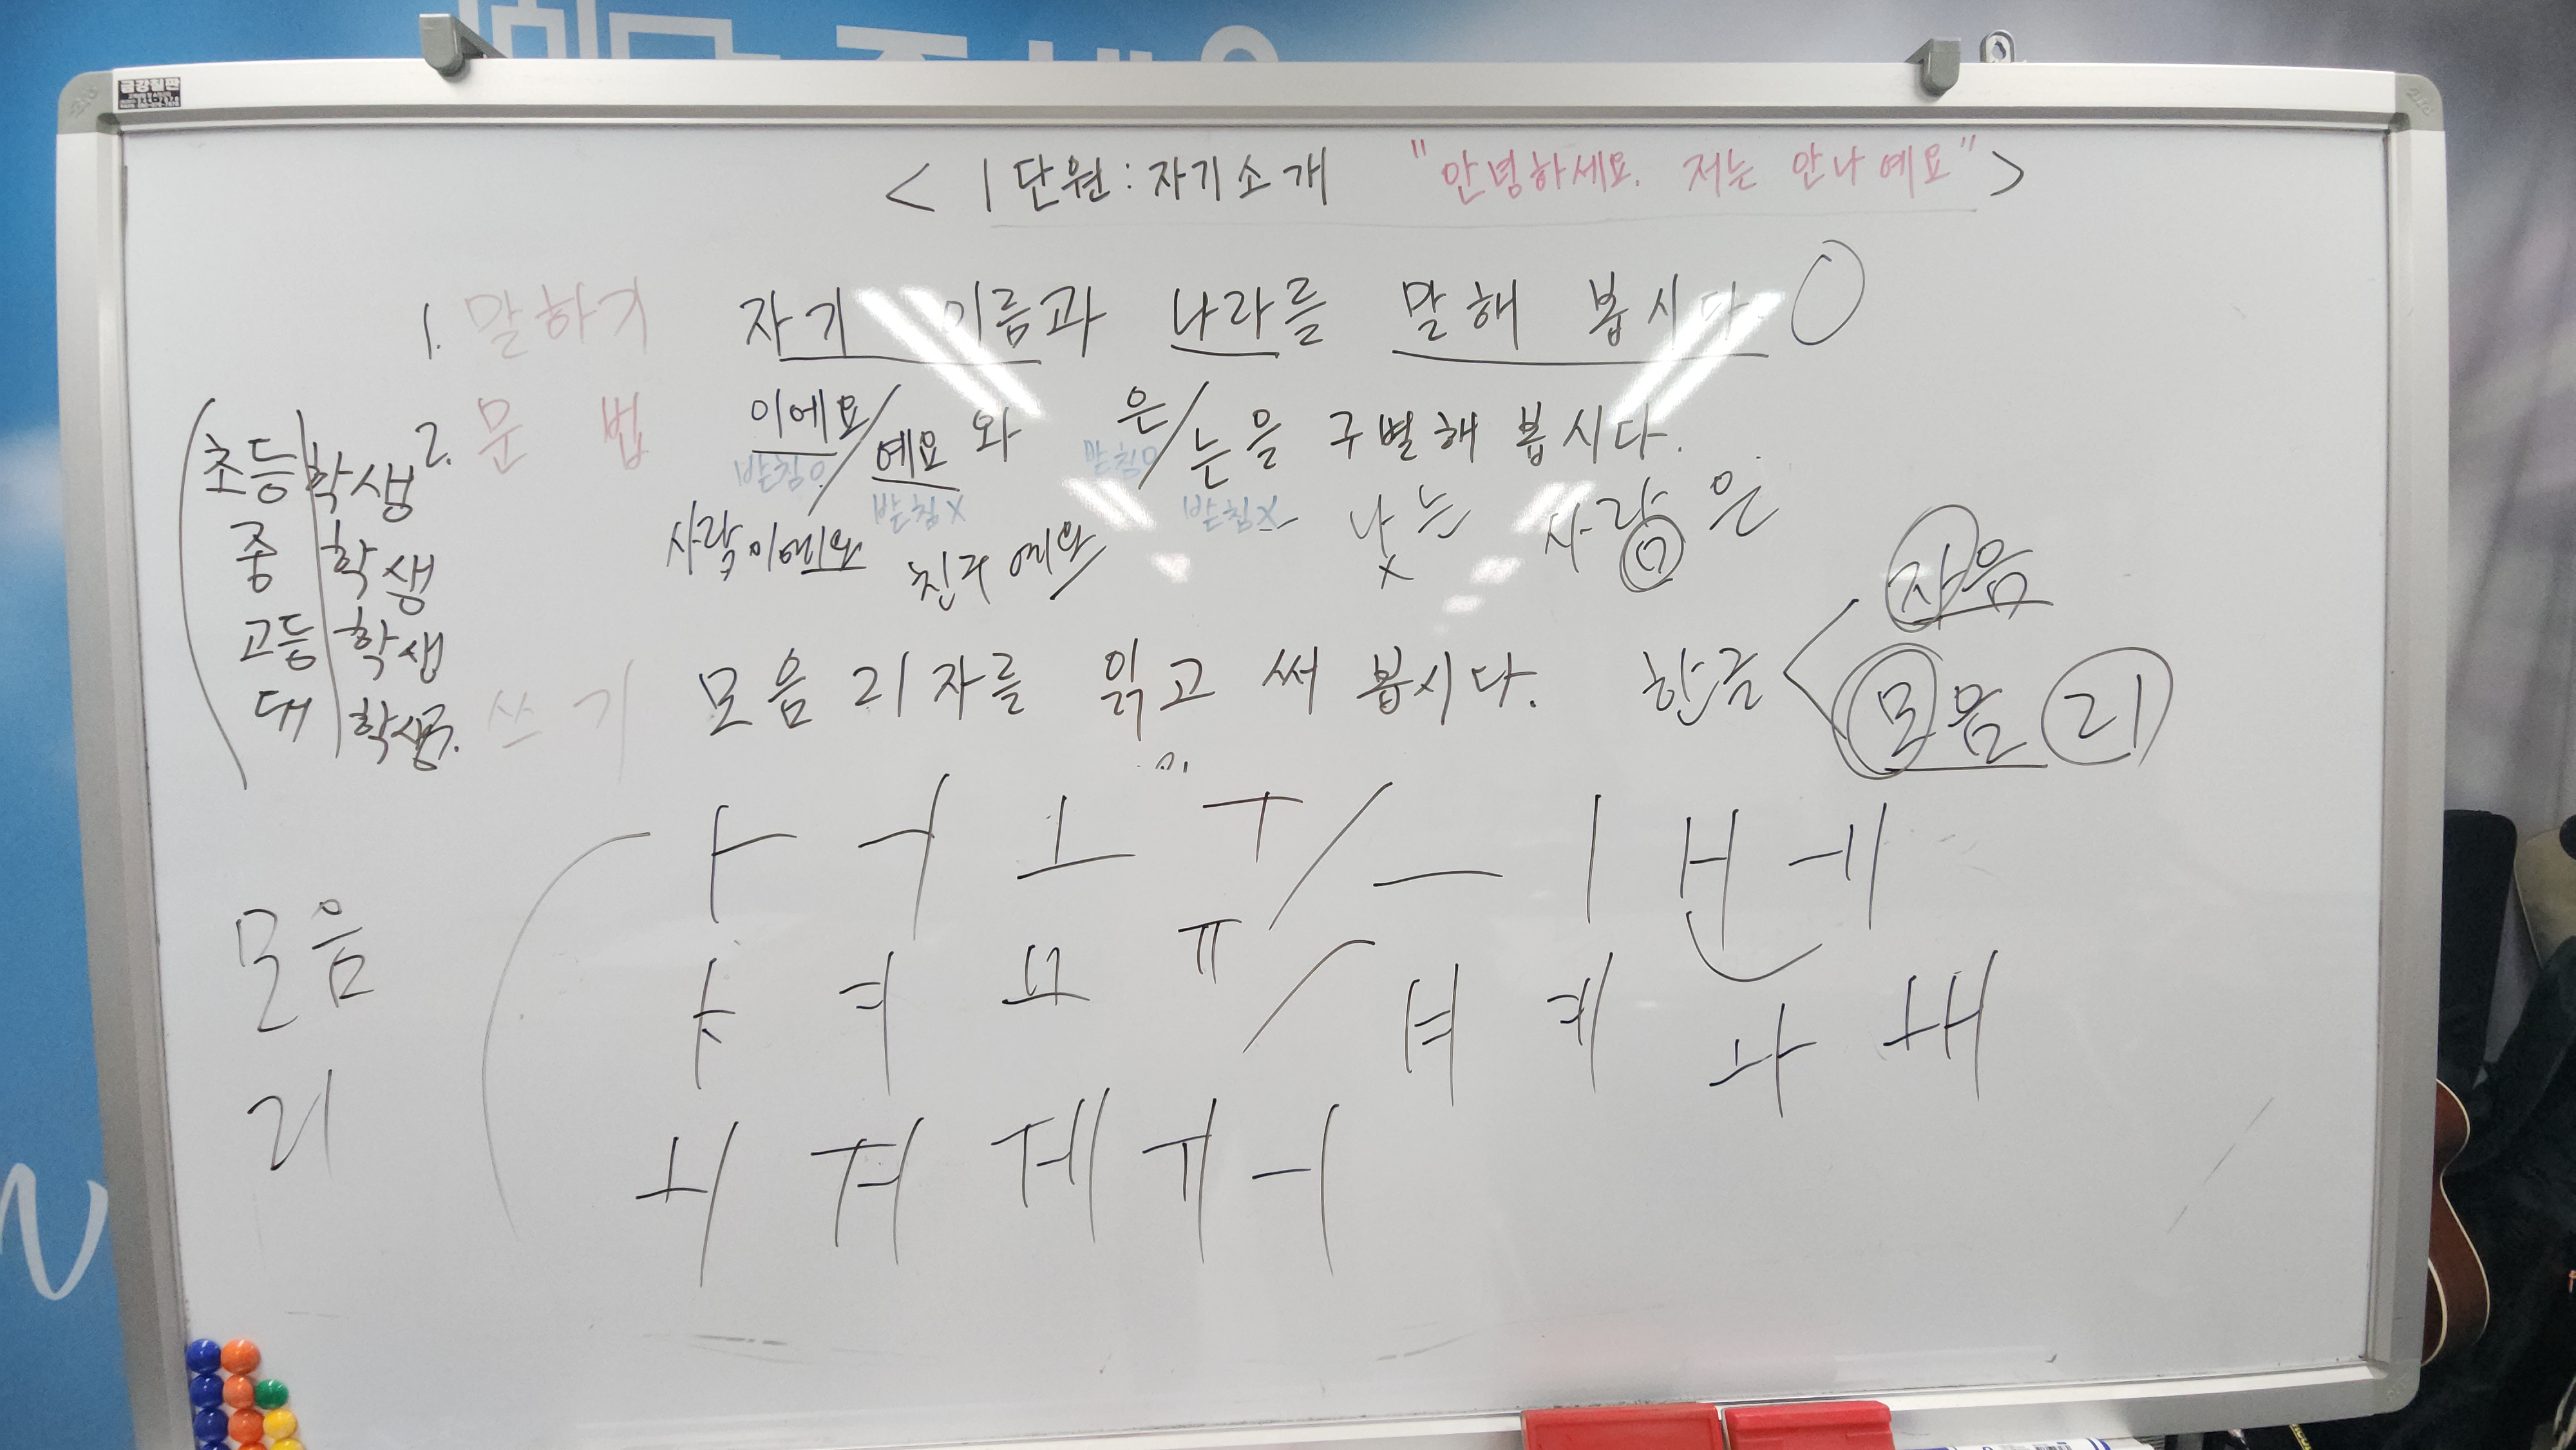 금강칠판
< 1단원 : 자기소개 "안녕하세요. 저는 안나예요" >
1. 말하기 자기 이름과 나라를 말해 봅시다.
2. 문법 이에요/예요 와 은/는을 구별해 봅시다.
받침o 받침x 받침o 받침x
사람이에요 친구예요 나는 사람은
x
초등학생
중학생
고등학생
대학생
3. 쓰기 모음 21자를 읽고 써 봅시다. 한글 < 자음
모음 21
모음
21
ㅏ ㅓ ㅗ ㅜ / ㅡ ㅣ ㅐ ㅔ
ㅑ ㅕ ㅛ ㅠ / ㅒ ㅖ ㅘ ㅙ
ㅚ ㅝ ㅞ ㅟ ㅢ